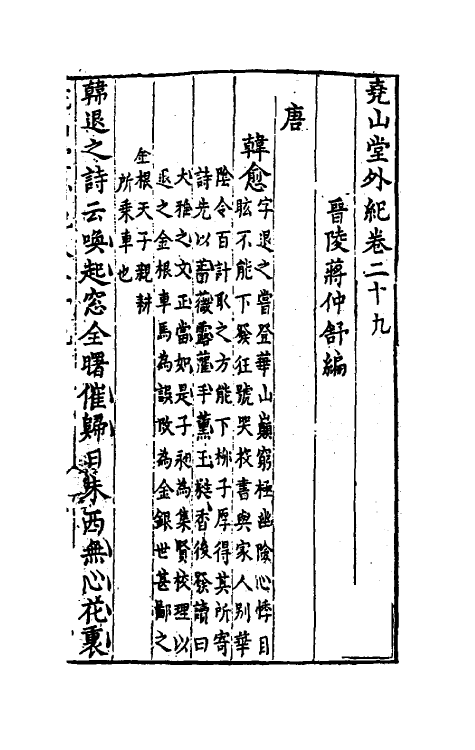 堯山堂外紀卷二十九
晉陵蔣仲舒編
唐
韓愈
字退之嘗登華山巔窮極幽險心悸目
眩不能下發狂號哭投書與家人別華
陰令百計取之方能下柳子厚得其所寄
詩先以薔薇露灌手薰玉蕤香後發讀曰
大雅之文正當如是子昶為集賢校理以
史之金根車馬為誤改為金銀世甚鄙之
金根天子親耕
所乗車也
韓退之詩云喚起窓全曙催歸日未西無心花裏